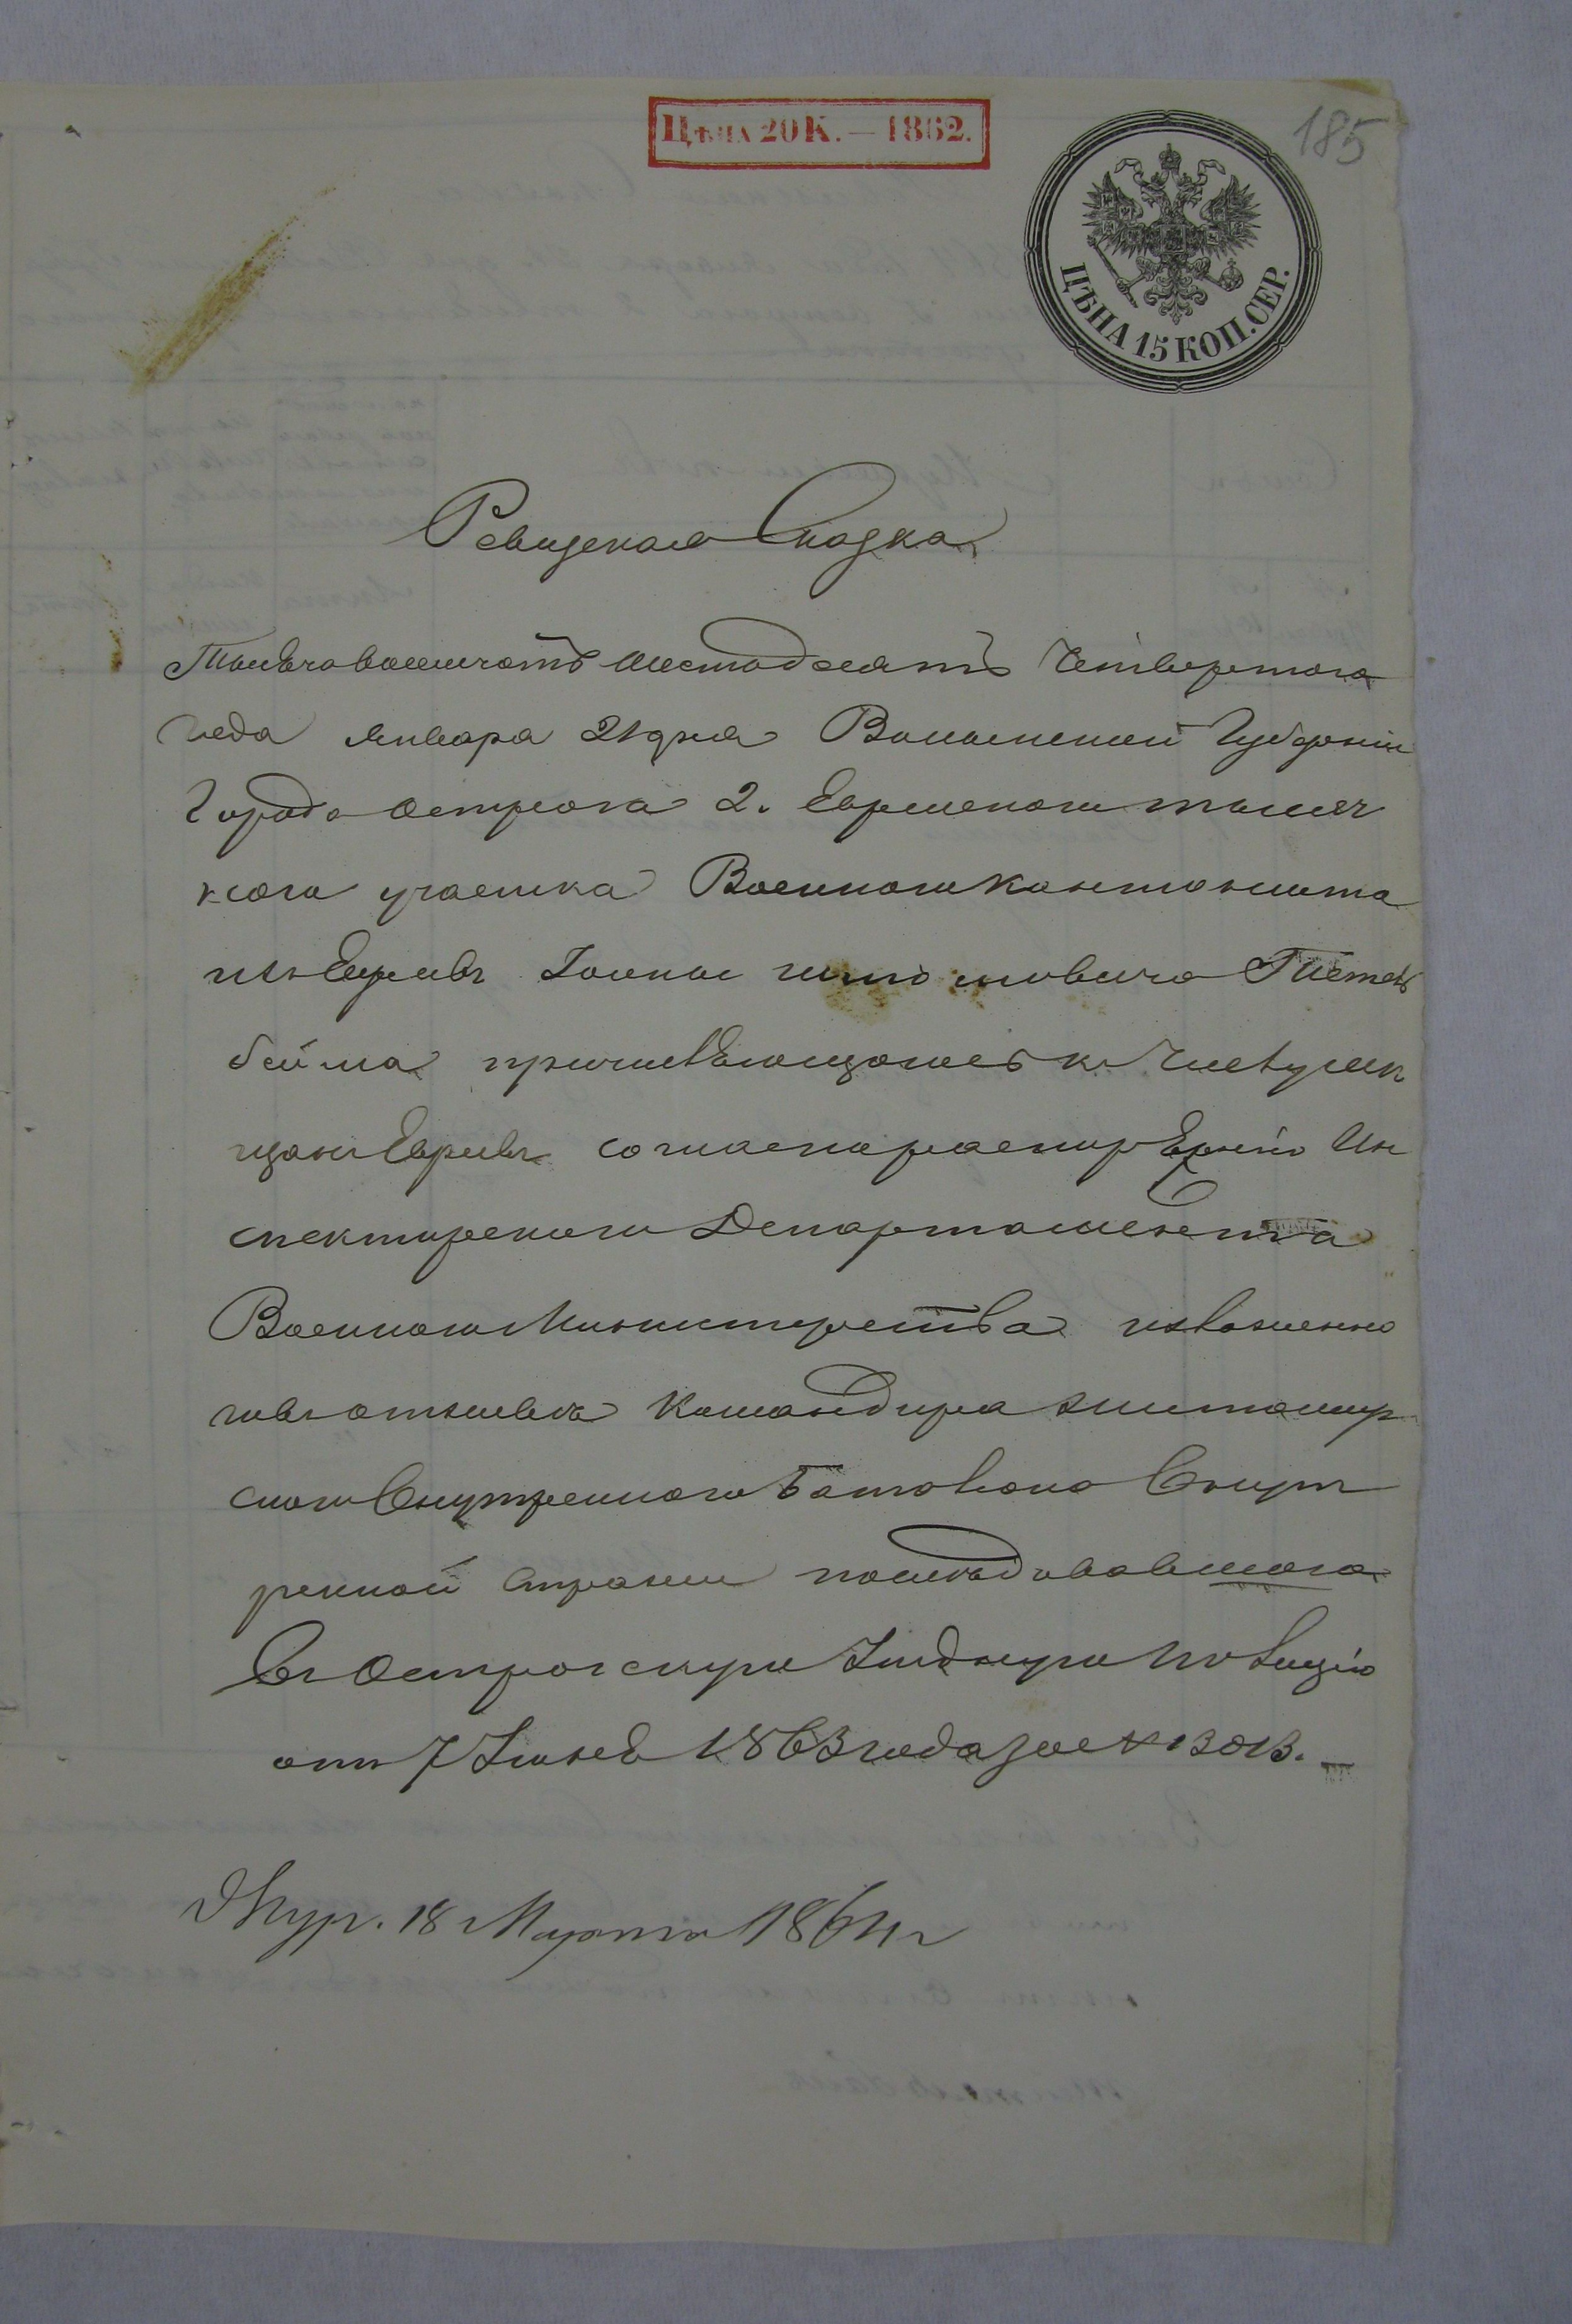 Цѣна 20 К. — 1862.
185
ЦѢНА 15 КОП. СЕР.
Ревизская Сказка
Тысяча восемсотъ шестьдесятъ Четвертого
года Января 21 дня Волынской Губерніи
Города Острога 2. Еврейского тысяч
ного участка Военного кантониста
изъ Евреевъ
причисляющогось къ
щанъ Евреевъ согласно распоряженію Ин
спекторского Департамента
Военного Министерства
командира Житомир
ского Внутренного Баталіона Внут
ренной Стражи последовавшого
въ Острогскую Ревизію
отъ 7 Іюня 1863 года за № 13013.
18 Марта 1864 г